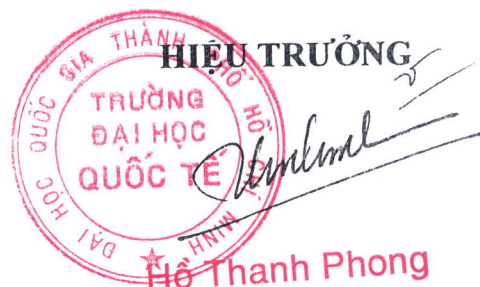 HIỆU TRƯỞNG
ĐẠI HỌC QUỐC GIA THÀNH PHỐ HỒ CHÍ MINH
TRƯỜNG
ĐẠI HỌC
QUỐC TẾ
Hồ Thanh Phong